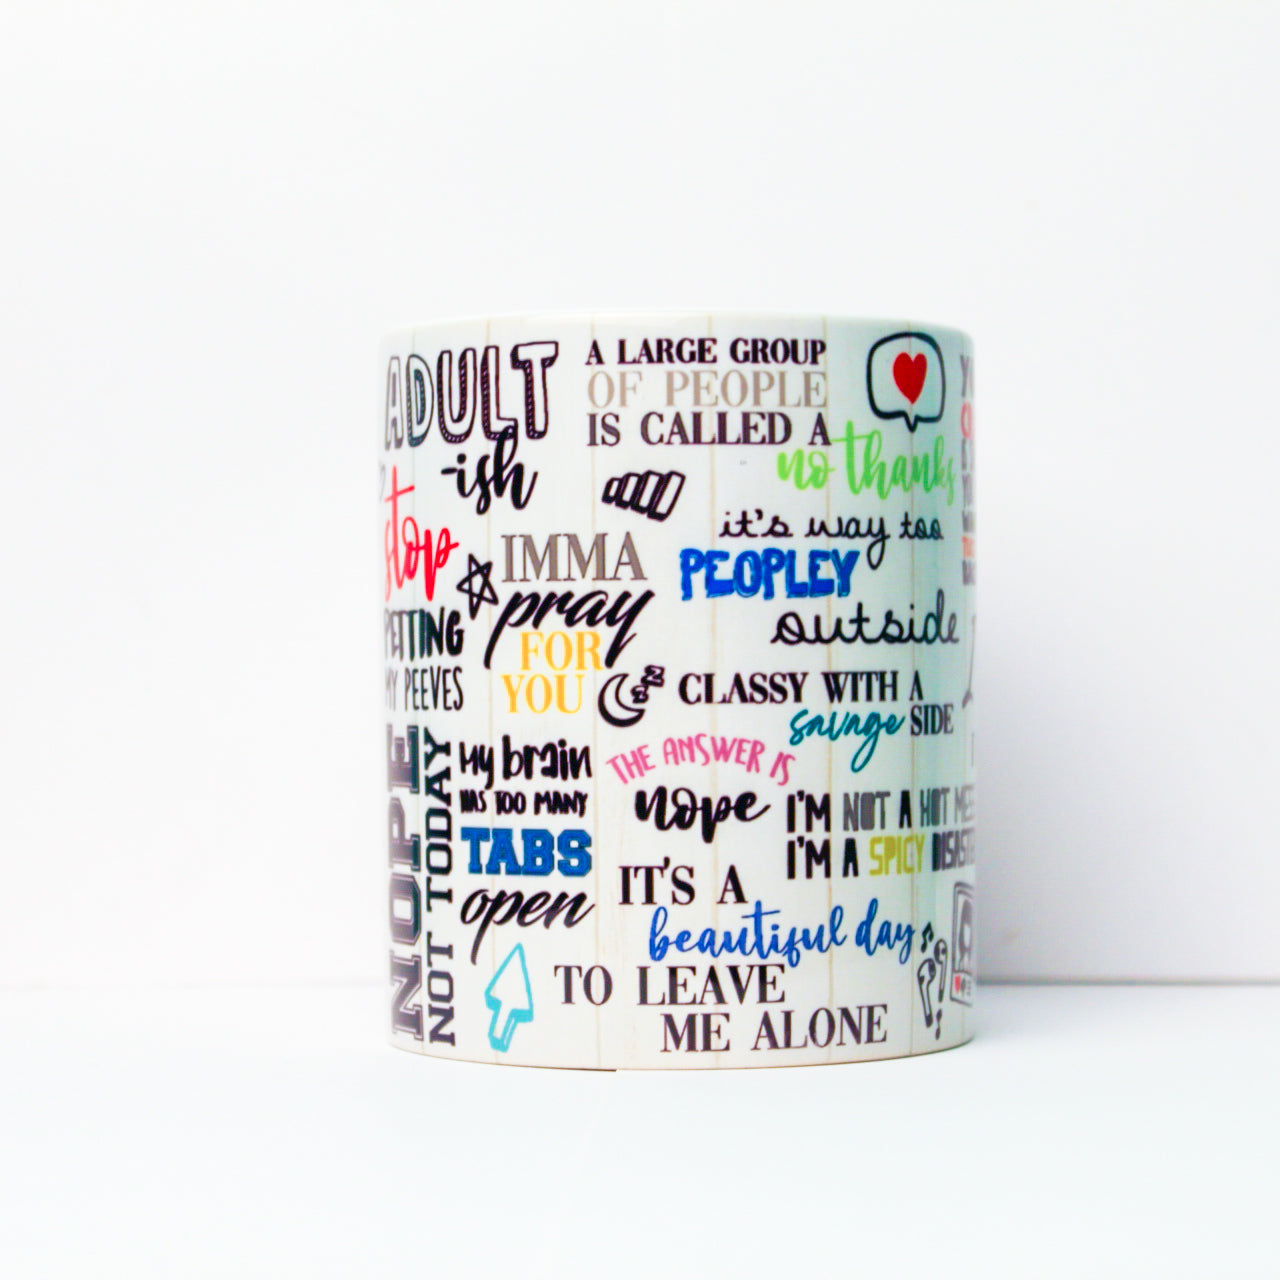 ADULT
-ish
A LARGE GROUP
OF PEOPLE
IS CALLED A
no thanks
stop
PETTING
MY PEEVES
IMMA
pray
FOR
YOU
it's way too
PEOPLEY
outside
CLASSY WITH A
savage SIDE
NOPE
NOT TODAY
My brain
HAS TOO MANY
TABS
open
THE ANSWER IS
nope
I'M NOT A HOT MESS
I'M A SPICY DISASTER
IT'S A
beautiful day
TO LEAVE
ME ALONE